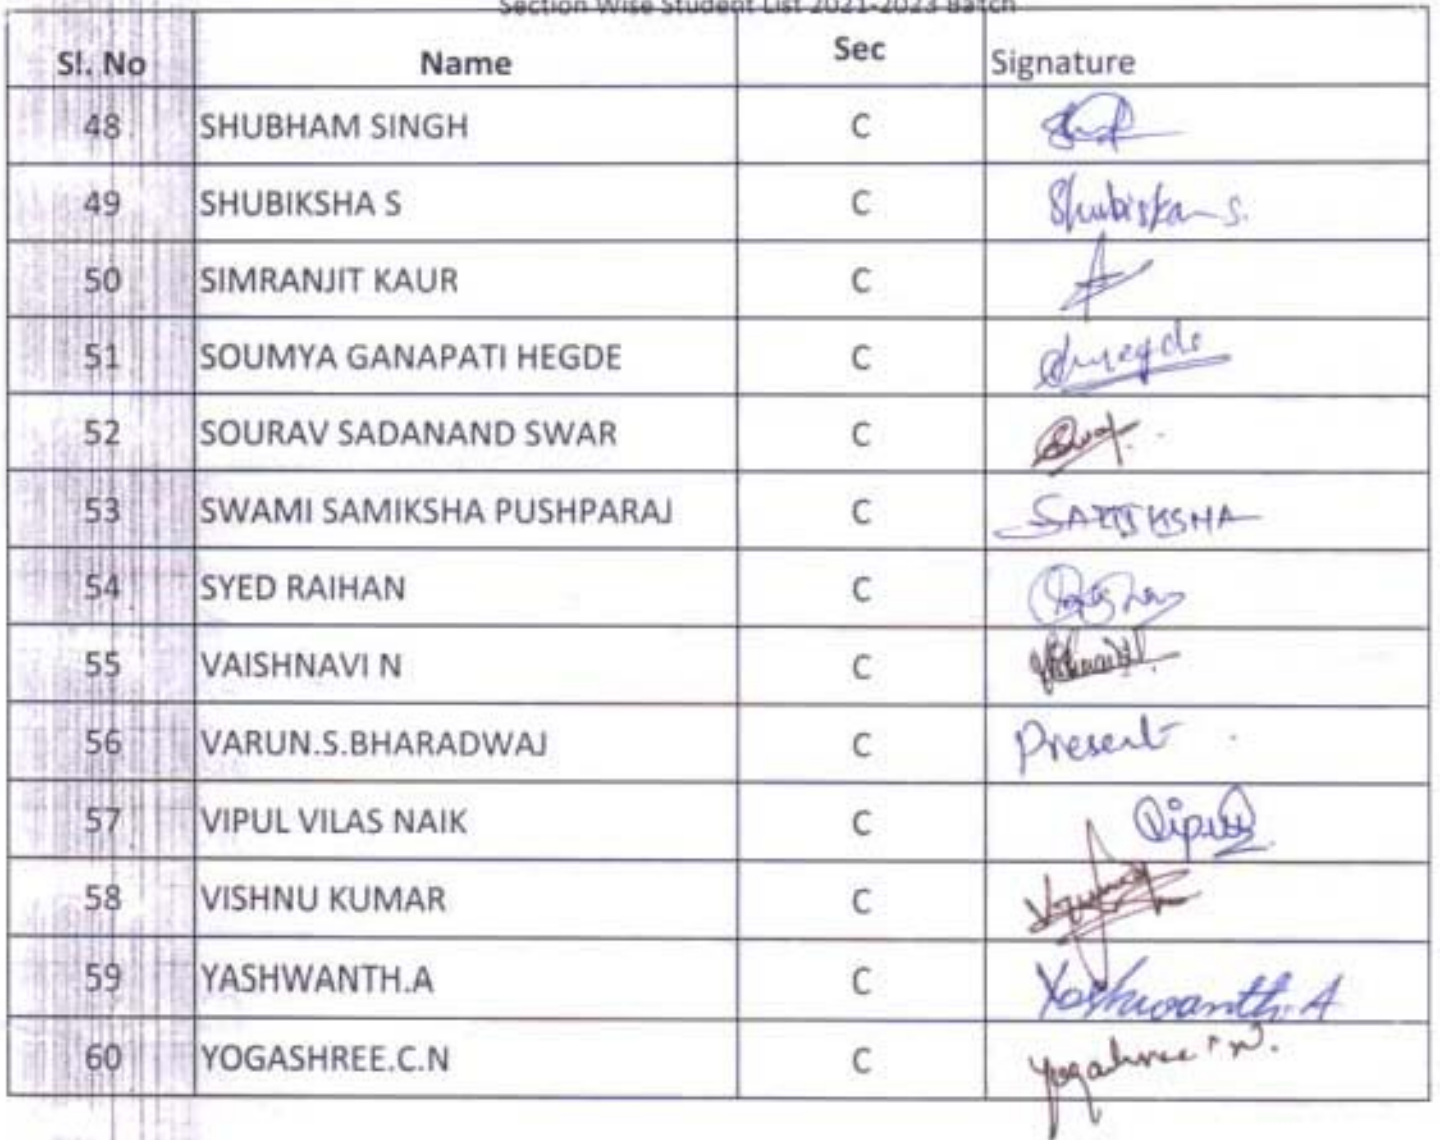 Section Wise Student List 2021-2023 Batch
Sl. No Name Sec Signature
48 SHUBHAM SINGH C
49 SHUBIKSHA S C Shubiksha S.
50 SIMRANJIT KAUR C
51 SOUMYA GANAPATI HEGDE C
52 SOURAV SADANAND SWAR C
53 SWAMI SAMIKSHA PUSHPARAJ C SAMIKSHA
54 SYED RAIHAN C
55 VAISHNAVI N C
56 VARUN.S.BHARADWAJ C Present
57 VIPUL VILAS NAIK C Vipul
58 VISHNU KUMAR C
59 YASHWANTH.A C Yashwanth. A
60 YOGASHREE.C.N C Yogashree